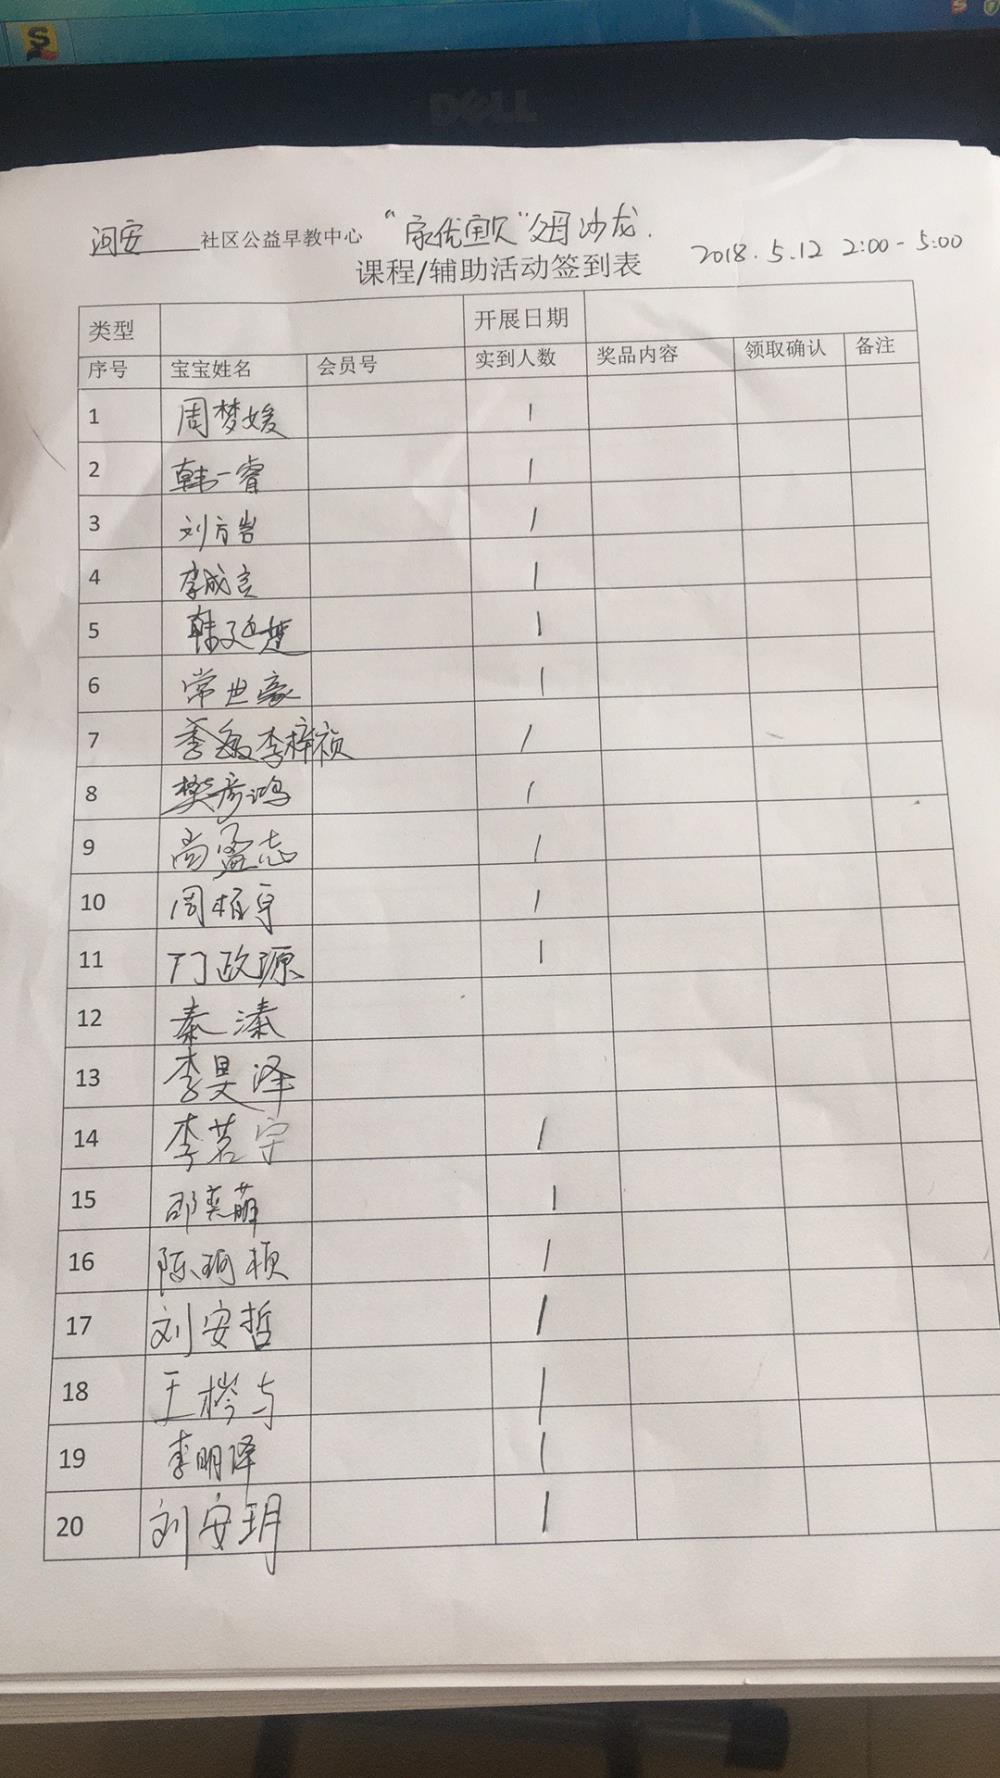 DELL
河安 社区公益早教中心 "家优宝贝"父母沙龙.
课程/辅助活动签到表 2018.5.12 2:00-5:00
类型 开展日期
序号 宝宝姓名 会员号 实到人数 奖品内容 领取确认 备注
1 周梦媛 1
2 韩一睿 1
3 刘方岩 1
4 李成言 1
5 韩廷楚 1
6 常世豪 1
7 李梓祯 1
8 樊彦鸿 1
9 尚盈志 1
10 周柏宇 1
11 门政源 1
12 秦溱
13 李昊泽
14 李茗宇 1
15 邵奕萌 1
16 陈珂桢 1
17 刘安哲 1
18 王梣与 1
19 李明泽 1
20 刘安玥 1